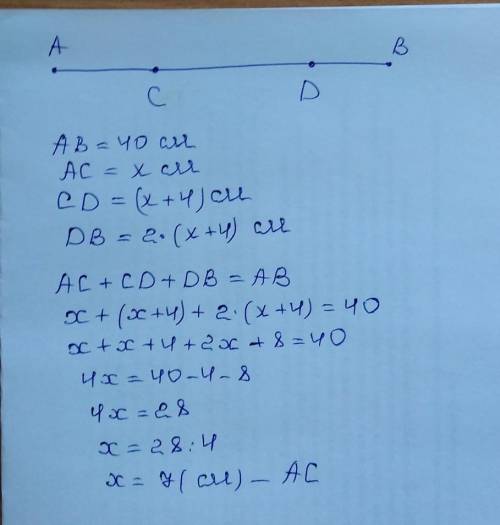 A B
C D
AB = 40 см
AC = x см
CD = (x+4) см
DB = 2·(x+4) см
AC + CD + DB = AB
x + (x+4) + 2·(x+4) = 40
x + x + 4 + 2x + 8 = 40
4x = 40 - 4 - 8
4x = 28
x = 28 : 4
x = 7 (см) – AC